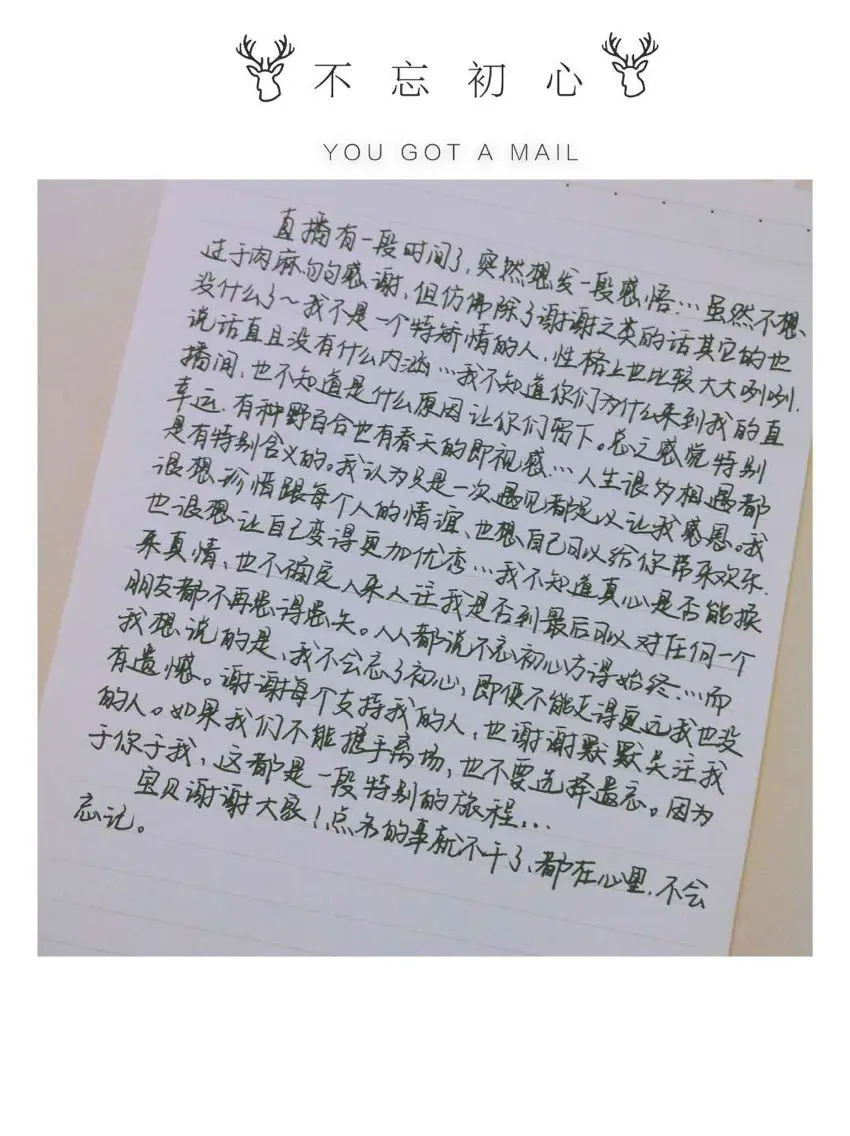 不忘初心
YOU GOT A MAIL
直播有一段时间了，突然想发一段感悟…虽然不想
过于肉麻句句感谢，但仿佛除了谢谢之类的话其它的也
没什么了～我不是一个特矫情的人，性格上也比较大大咧咧.
说话直且没有什么内涵…我不知道你们为什么来到我的直
播间，也不知道是什么原因让你们留下。总之感觉特别
幸运.有种野百合也有春天的即视感…人生很多相遇都
是有特别含义的。我认为只是一次遇见都足以让我感恩。我
很想珍惜跟每个人的情谊、也想自己可以给你带来欢乐.
也很想让自己变得更加优秀…我不知道真心是否能换
来真情，也不确定人来人往我是否到最后可以对任何一个
朋友都不再患得患失。人人都说不忘初心方得始终…而
我想说的是、我不会忘了初心，即便不能走得更远我也没
有遗憾。谢谢每个支持我的人，也谢谢默默关注我
的人。如果我们不能携手离场，也不要选择遗忘。因为
于你于我，这都是一段特别的旅程…
宝贝谢谢大家！点名的事就不干了、都在心里.不会
忘记。